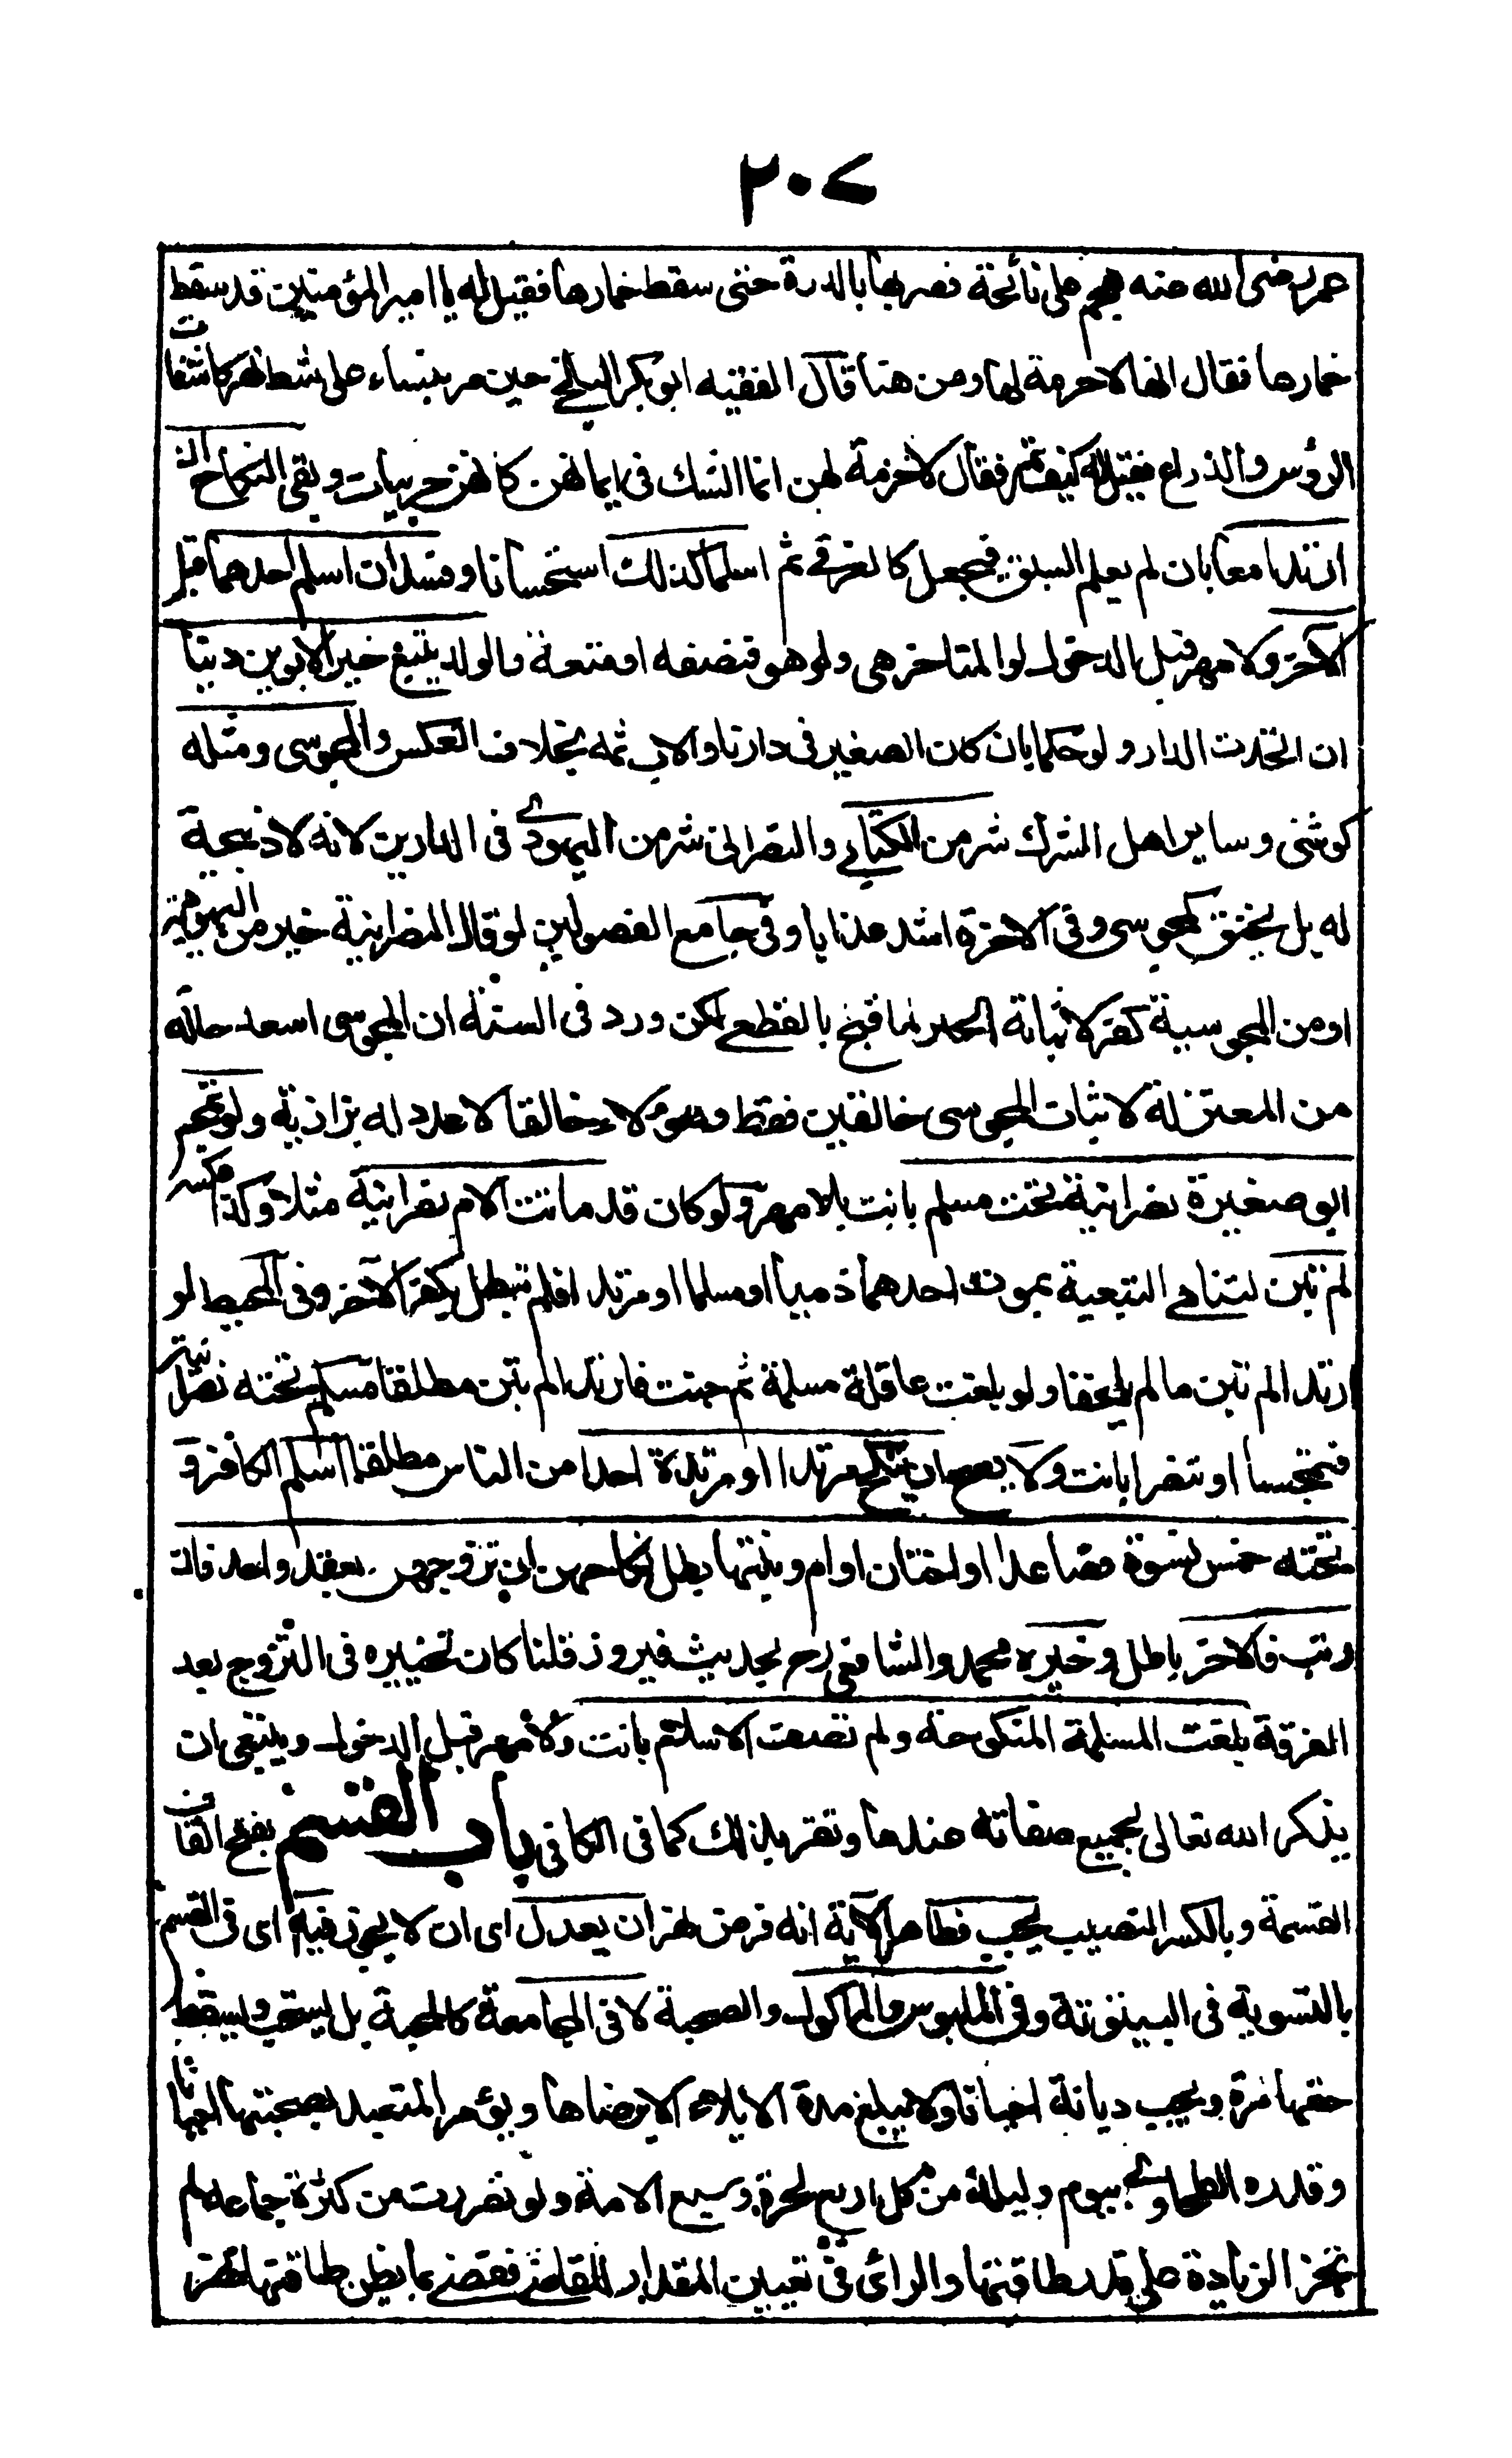 ٢٠٧
عمر رضى الله عنه هجم على نائحة فضربها بالدرة حتى سقط خمارها فقيل له يا امير المؤمنين قد سقط
خمارها فقال انها لا حرمة لها ومن هنا قال الفقيه ابو بكر البلخي حين مر بنساء على شط نهر كاشفات
الرؤس والذراع فقيل له كيف تمر فقال لا حرمة لهن انما الشك فى ايمانهن كانهن حربيات وبقى النكاح ان
ارتدا معا بان لم يعلم السبق فيجعل كالغرقي ثم اسلما كذلك استحسانا وفسد ان اسلم احدهما قبل
الآخر ولا مهر قبل الدخول لو المتاخر هى ولو هو فنصفه او متعة والولد يتبع خير الابوين دينا
ان اتحدت الدار ولو حكما بان كان الصغير فى دارنا والاب ثمه بخلاف العكس والمجوسى ومثله
كوثنى وساير اهل الشرك شر من الكتابي والنصرانى شر من اليهودي فى الدارين لانه لا ذبيحة
له بل يخنق كمجوسى وفى الآخرة اشد عذابا وفى جامع الفصولين لو قال النصرانية خير من اليهودية
او من المجوسية كفر لاثباته الخير لما قبح بالقطعي لكن ورد فى السنة ان المجوسى اسعد حالة
من المعتزلة لاثبات المجوسى خالقين فقط وهؤلاء خالقا لا عدد له بزازية ولو تمجس
ابو صغيرة نصرانية تحت مسلم بانت بلا مهر ولو كان قد ماتت الام نصرانية مثلا وكذا عكسه
لم تبن لتناهي التبعية بموت احدهما ذميا او مسلما او مرتدا فلم تبطل بكفر الآخر وفى المحيط لو
ارتدا لم تبن ما لم يلحقا ولو بلغت عاقلة مسلمة ثم جنت فارتدا لم تبن مطلقا مسلم تحته نصرانية
فتمجسا او تنصرا بانت ولا يصح ان ينكح مرتدا او مرتدة احدا من الناس مطلقا اسلم الكافر و
تحته خمس نسوة فصاعدا او اختان او ام وبنتها بطل نكاحهن ان تزوجهن بعقد واحد فان
رتب فالآخر باطل وخيره محمد والشافعى رح بحديث فيروز قلنا كان تخييره فى التزوج بعد
الفرقة بلغت المسلمة المنكوحة ولم تصف الاسلام بانت ولا مهر قبل الدخول وينبغى ان
يذكر الله تعالى بجميع صفاته عندها وتقر بذلك كما فى الكافى باب القسم بفتح القاف
القسمة وبالكسر النصيب يجب فظاهر الآية انه فرض نهر ان يعدل اى ان لا يجوز فيه اى فى القسم
بالتسوية فى البيتوتة وفى الملبوس والماكول والصحبة لا فى المجامعة كالمحبة بل يستحب ويسقط
حقها مرة ويجب ديانة احيانا ولا يبلغ مدة الايلاء الا برضاها ويؤمر المتعبد بصحبتها احيانا
وقدره الطحاوي بيوم وليلة من كل اربع لحرة وسبع الامة ولو تضررت من كثرة جماعه لم
تجز الزيادة على قدر طاقتها والراى فى تعيين المقدار للقاضي فيقضي بما يظن طاقتها نهر